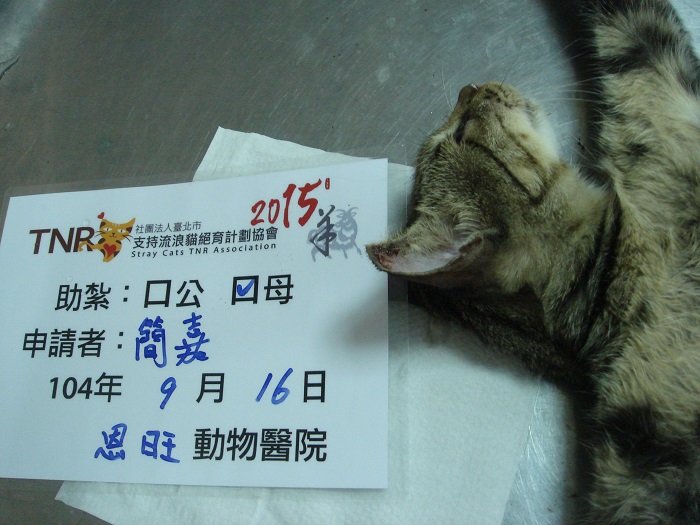 TNR 社團法人臺北市
支持流浪貓絕育計劃協會
Stray Cats TNR Association
2015 羊
助紮：口公 口母
申請者：簡嘉
104年 9月 16日
恩旺 動物醫院